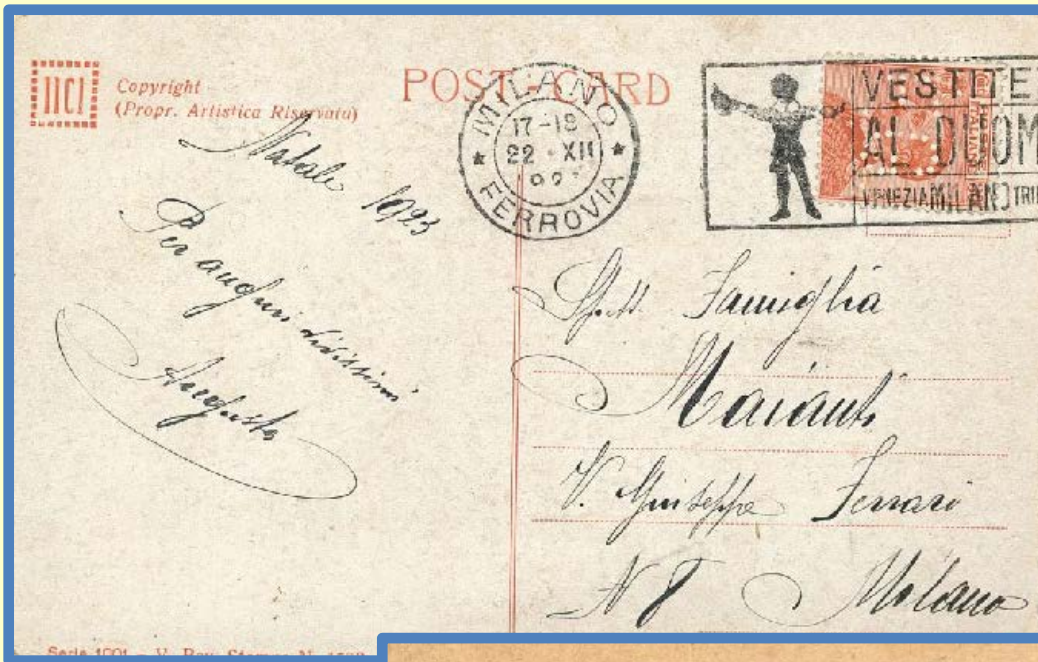 IICI
Copyright
(Propr. Artistica Riservata)
POST-CARD
MILANO
17-18
22 · XII
FERROVIA
VESTITE
AL DUOM
VENEZIA MILANO TRI
Natale 1923
Per auguri vivissimi
Augusta
Spett. Famiglia
Maianti
V. Giuseppe Ferrari
N 8 Milano
Serie 1001 - V.